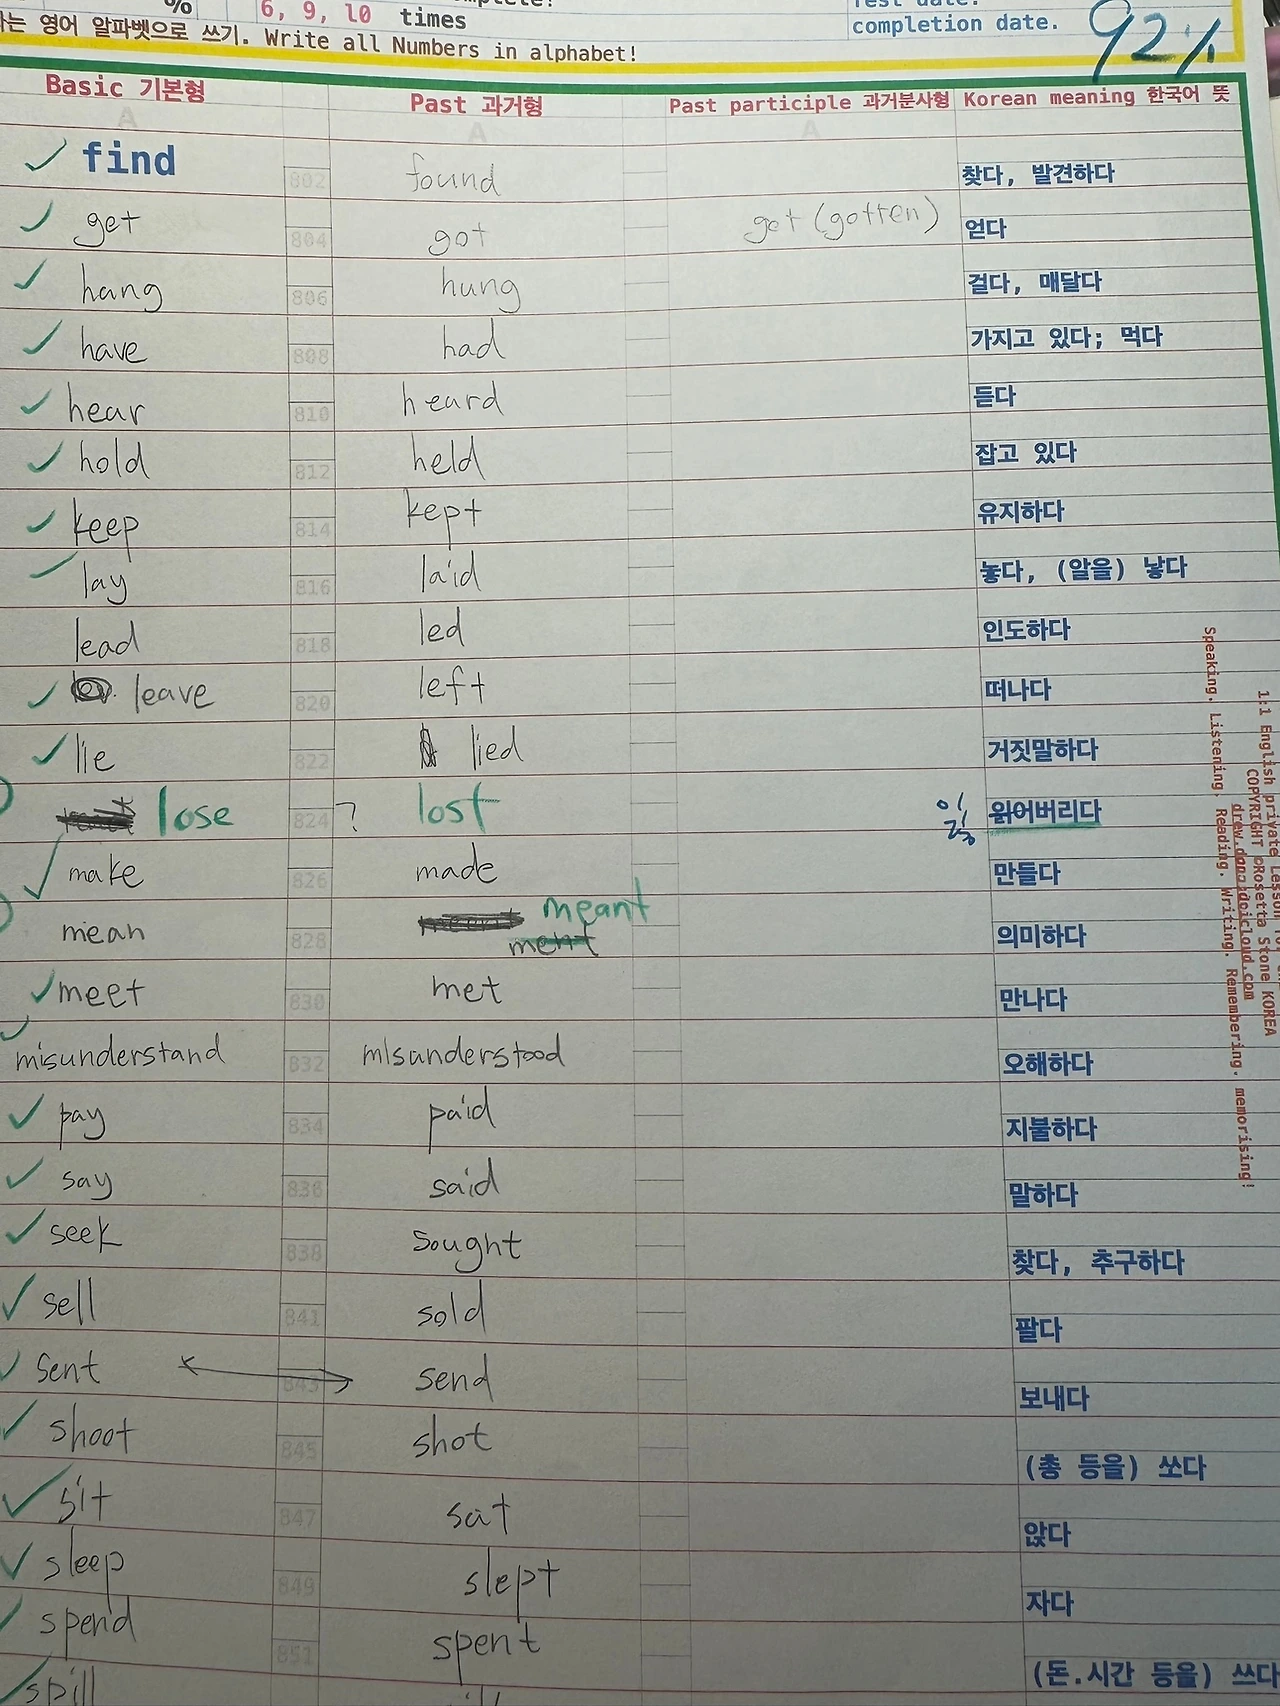 %
6, 9, 10 times
completion date.
92%
는 영어 알파벳으로 쓰기. Write all Numbers in alphabet!
Basic 기본형 Past 과거형 Past participle 과거분사형 Korean meaning 한국어 뜻
A A A
find 802 found 찾다, 발견하다
get 804 got got (gotten) 얻다
hang 806 hung 걸다, 매달다
have 808 had 가지고 있다; 먹다
hear 810 heard 듣다
hold 812 held 잡고 있다
keep 814 kept 유지하다
lay 816 laid 놓다, (알을) 낳다
lead 818 led 인도하다
leave 820 left 떠나다
lie 822 lied 거짓말하다
lose 824 ? lost 읽어버리다
make 826 made 만들다
mean 828 meant ment 의미하다
meet 830 met 만나다
misunderstand 832 misunderstood 오해하다
pay 834 paid 지불하다
say 836 said 말하다
seek 838 sought 찾다, 추구하다
sell 841 sold 팔다
sent 843 send 보내다
shoot 845 shot (총 등을) 쏘다
sit 847 sat 앉다
sleep 849 slept 자다
spend 851 spent (돈.시간 등을) 쓰다
spill
Speaking. Listening. Reading. Writing. Remembering. memorising!
1:1 English private Lesson
COPYRIGHT ©Rosetta Stone KOREA